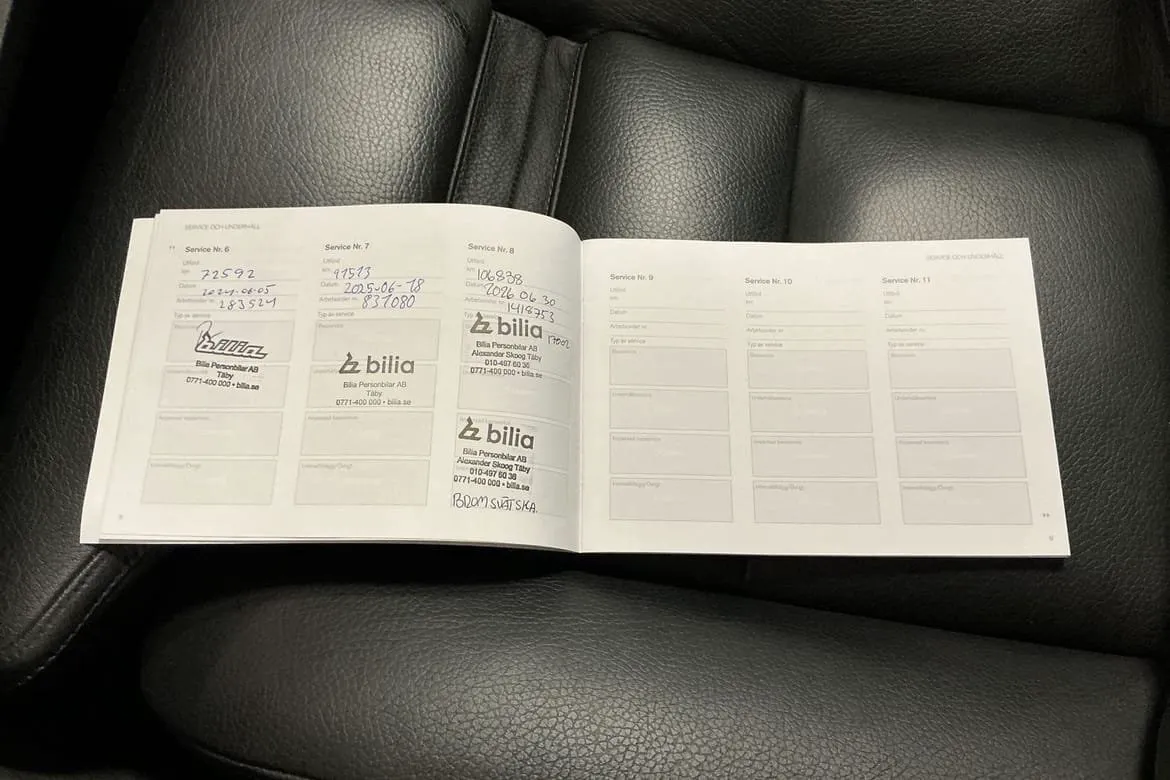 SERVICE OCH UNDERHÅLL
Service Nr. 6
Utförd
km 72592
Datum 2024-06-05
Arbetsorder nr. 283521
Typ av service
Basservice
Bilia
Bilia Personbilar AB
Täby
0771-400 000 • bilia.se
Anpassad basservice
Service Nr. 7
Utförd
km 91513
Datum 2025-06-18
Arbetsorder nr. 837080
Typ av service
Basservice
bilia
Bilia Personbilar AB
Täby
0771-400 000 • bilia.se
Anpassad basservice
Service Nr. 8
Utförd
km 106838
Datum 2026 06 30
Arbetsorder nr. 1418753
bilia
Bilia Personbilar AB
Alexander Skoog Täby
010-497 60 36
0771-400 000 • bilia.se
bilia
Bilia Personbilar AB
Alexander Skoog Täby
010-497 60 36
0771-400 000 • bilia.se
BROMSVÄTSKA.
SERVICE OCH UNDERHÅLL
Service Nr. 9
Utförd
km
Datum
Arbetsorder nr.
Typ av service
Basservice
Anpassad basservice
Service Nr. 10
Utförd
km
Datum
Arbetsorder nr.
Typ av service
Basservice
Anpassad basservice
Service Nr. 11
Utförd
km
Datum
Arbetsorder nr.
Typ av service
Basservice
Anpassad basservice